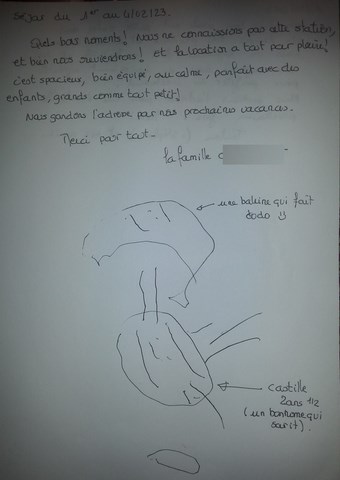 Séjour du 1er au 4/02/23.
Quels bons moments! Nous ne connaissions pas cette station,
et bien nous reviendrons! et la location a tout pour plaire!
c'est spacieux, bien équipé, au calme, parfait avec des
enfants, grands comme tout petit!
Nous gardons l'adresse pour nos prochaines vacances.
Merci pour tout.
la famille
une baleine qui fait
dodo
Castille
2ans 1/2
(un bonhomme qui
sourit).